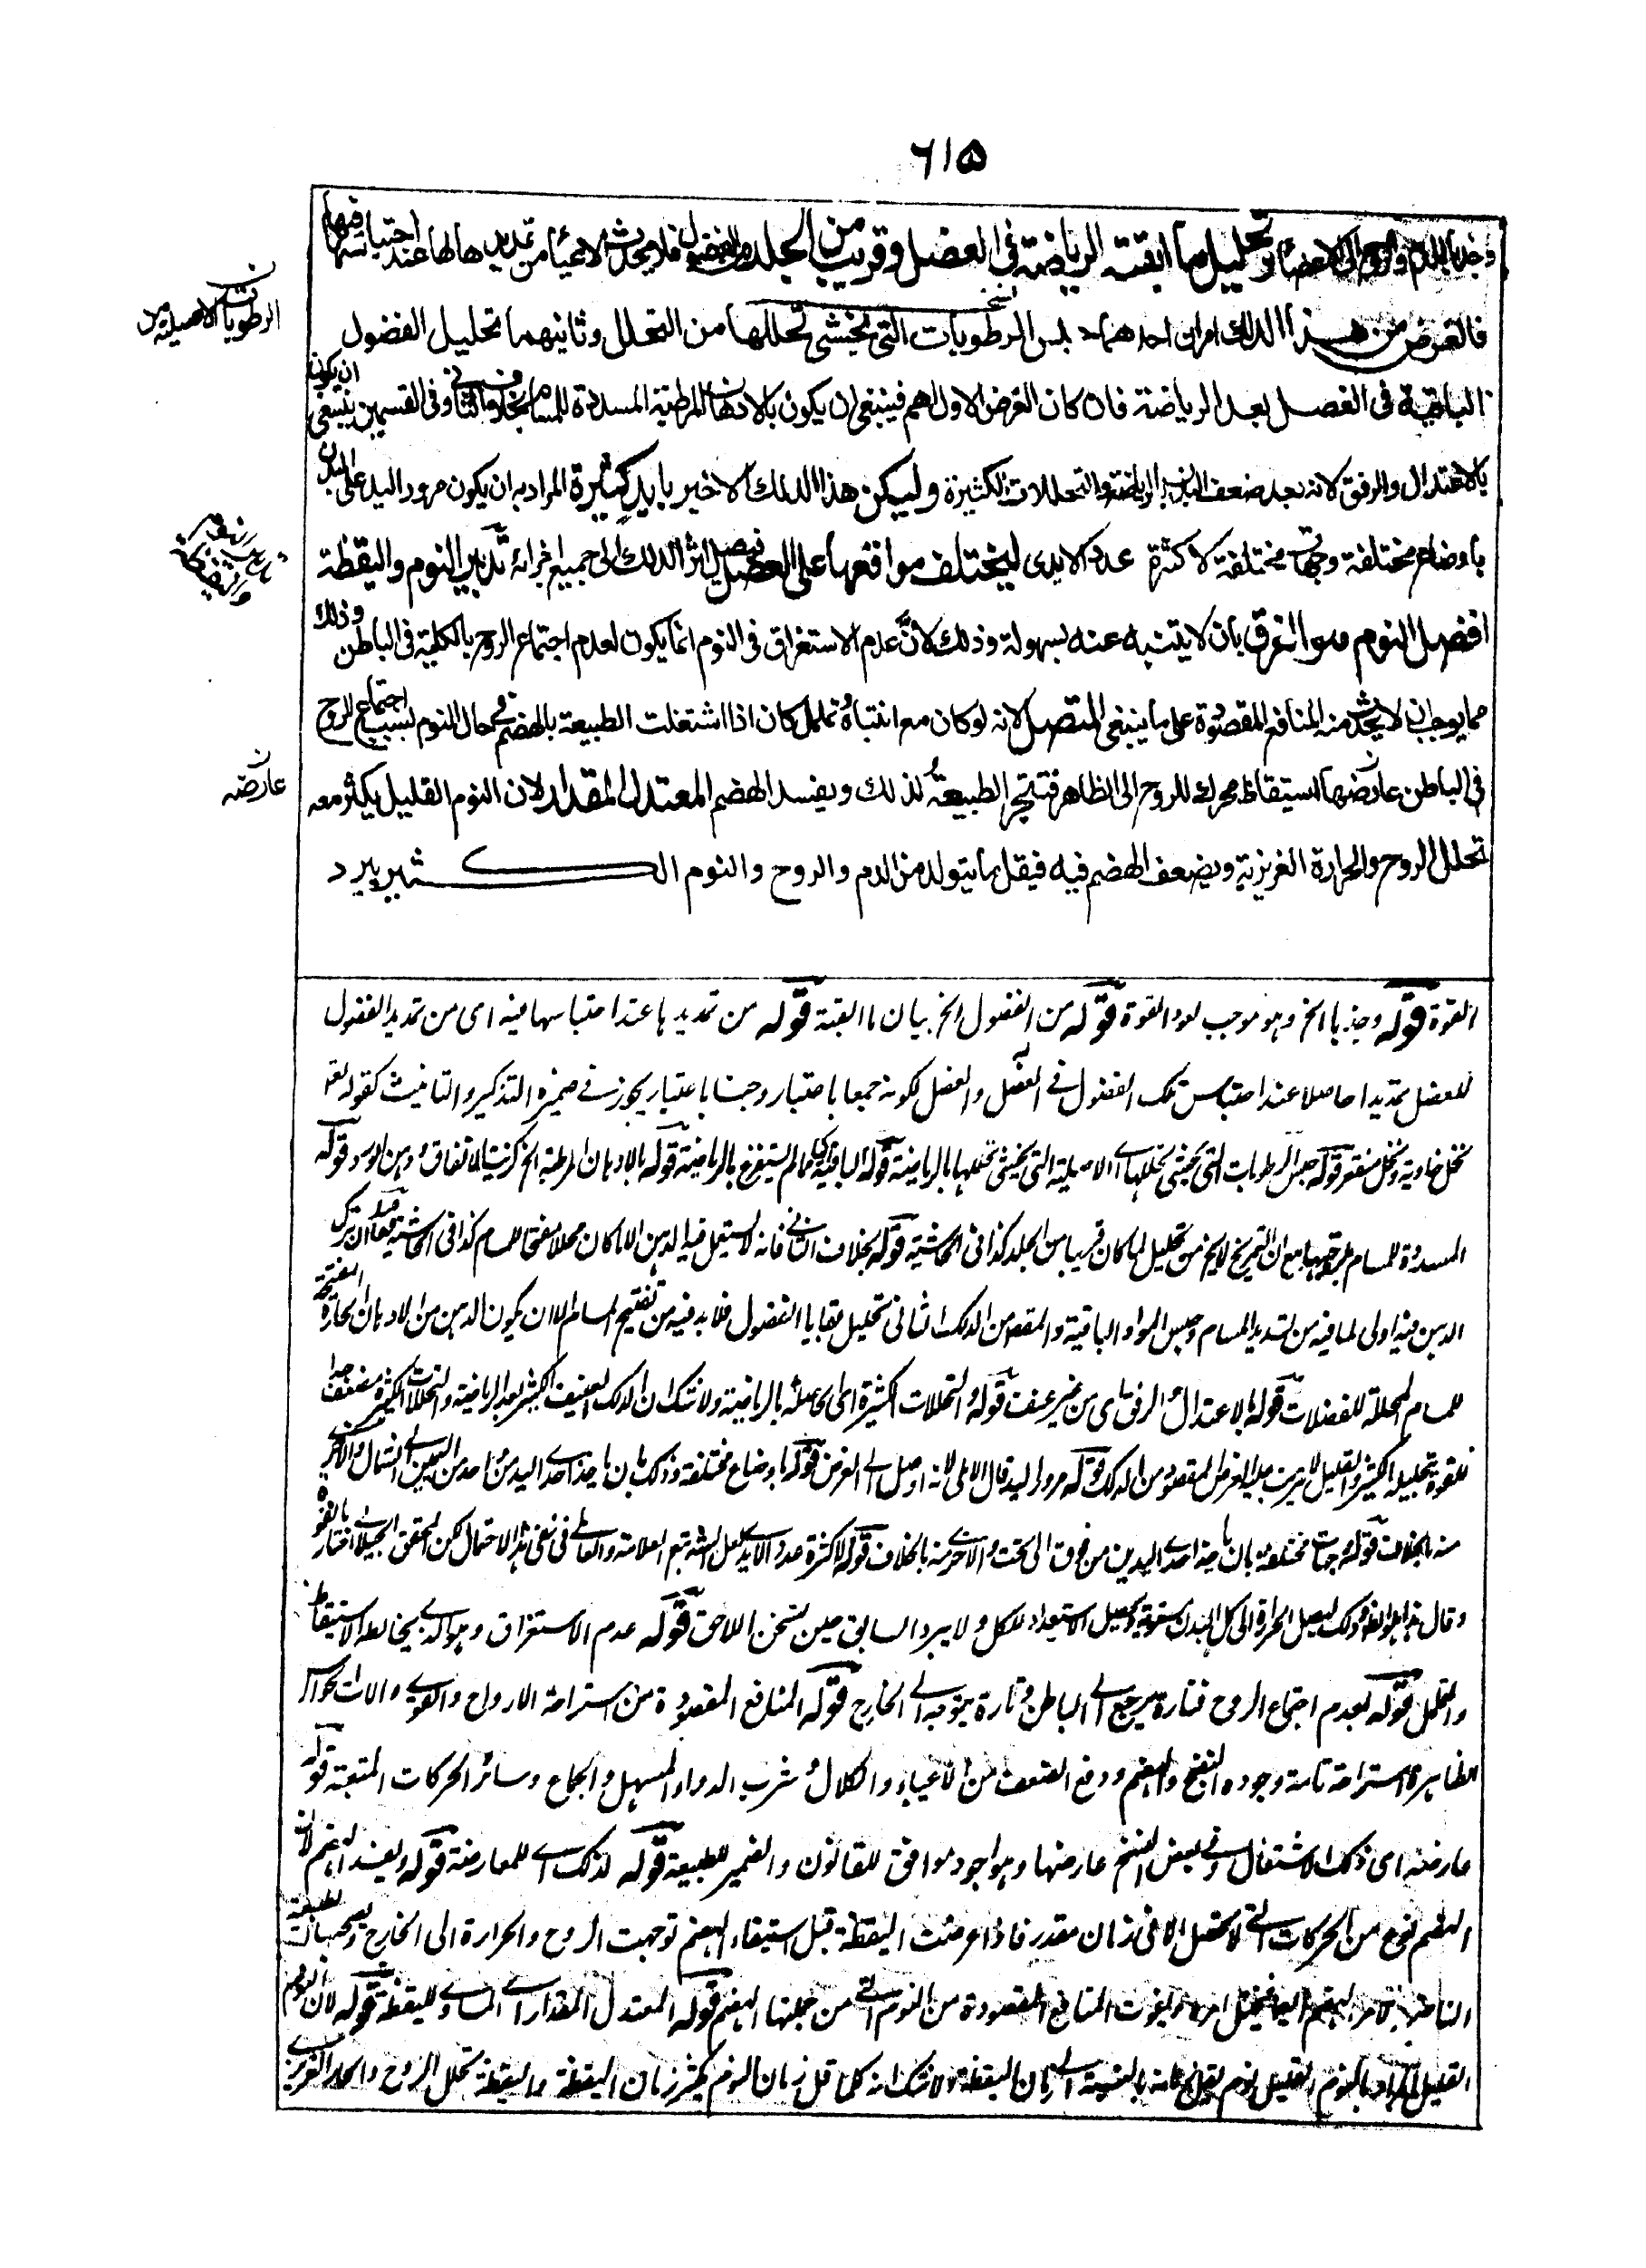 ٦١٥
وجذبها الدم والروح الى الاعضاء وتحليل ما ابقته الرياضة فى العضل وقريب من الجلد من الفضول فلا يحدث الاعياء من تمديدها لها عند احتباسها فيها
فالغرض من هذا الدلك امران احدهما حبس الرطوبات التى يخشى تحللها من التحلل وثانيهما تحليل الفضول
الرطوبات الاصلية
الباقية فى العضل بعد الرياضة فان كان الغرض الاول اهم فينبغى ان يكون بالادهان المرطبة المسددة للمسام بخلاف الثانى وفى القسمين ينبغى ان يكون
بالاعتدال والرفق لانه بعد ضعف البدن بالرياضة والتحللات الكثيرة وليكن هذا الدلك الاخير بايد كثيرة المراد به ان يكون مرور اليد على البدن
باوضاع مختلفة وجهات مختلفة لا كثرة عدد الايدى ليختلف مواقعها على العضل فيصل اثر الدلك الى جميع اجزائه تدبير النوم واليقظة
افضل النوم هو الغرق بان لا يتنبه عنه بسهولة وذلك لان عدم الاستغراق فى النوم انما يكون لعدم اجتماع الروح بالكلية فى الباطن وذلك
مما يوجب ان لا يحدث منه المنافع المقصودة على ما ينبغى المتصل لانه لو كان مع انتباه وتململ كان اذا اشتغلت الطبيعة بالهضم فى حال النوم بسبب اجتماع الروح
فى الباطن عارضها استيقاظ محرك للروح الى الظاهر فتتحير الطبيعة لذلك ويفسد الهضم المعتدل المقدار لان النوم القليل يكثر معه
عارضه
تحلل الروح والحرارة الغريزية ويضعف الهضم فيه فيقل ما يتولد من الدم والروح والنوم الكثير يبرد
القوة قوله وجذبها الخ وهو موجب لعود القوة قوله من الفضول الخ بيان ما ابقته قوله من تمديدها عند احتباسها فيه اى من تمديد الفضول
للعضل تمديدا حاصلا عند احتباس تلك الفضول فى العضل والعضل لكونه جمعا باعتبار وجنسا باعتبار يجوز فى ضميره التذكير والتانيث كقوله تعالى
نخل خاوية ونخل منقعر قوله حبس الرطوبات التى يخشى تحللها اے الاصلية التى يخشى تحللها بالرياضة قوله الباقية اى مما لم يستفرغ بالرياضة قوله بالادهان المرطبة الخ كزيت الانفاق ودهن الورد قوله
المسددة للمسام مع ان التمريخ لا يخ من تحليل لما كان قريبا من الجلد كذا فى الحاشية قوله بخلاف الثانى فانه لا يستعمل فيه الدهن الا ما كان محللا مفتحا للمسام كذا فى الحاشية
الدهن فيه اولى لما فيه من تسديد المسام وحبس المواد الباقية والمقصود من الدلك الثانى تحليل بقايا الفضول فلا بد فيه من تفتيح المسام اللهم الا ان يكون الدهن من الادهان الحارة المفتحة
للمسام المحللة للفضلات قوله بالاعتدال والرفق اى من غير عنف قوله والتحللات الكثيرة اى الحاصلة بالرياضة ولا شك ان الدلك العنيف الكثير بعد الرياضة والتحللات الكثيرة مضعف جدا
للقوة بتحليله الكثير والقليل لا يترتب عليه الغرض المقصود من الدلك قوله مرور اليد قال الآملى لانه اوصل الى الغرض قوله باوضاع مختلفة وذلك بان ياخذ احدى اليدين من اليمين الى الشمال والاخرى
منه بالخلاف قوله وجهات مختلفة بان ياخذ احدى اليدين من فوق الى تحت والاخرى منه بالخلاف قوله لا كثرة عدد الايدى لعل الشارح تبع العلامة فى نفى هذا الاحتمال لكن المحقق الجيلانى اختاره
وقال هذا هو الظاهر وذلك ليصل الحرارة الى كل البدن بسرعة ويحصل الاستعداد للكل ولا يبرد السابق حين يسخن اللاحق قوله عدم الاستغراق وهو الذى يخالطه الاستيقاظ
والتململ قوله لعدم اجتماع الروح فتارة يرجع الى الباطن وتارة يتوجه الى الخارج قوله المنافع المقصودة من استراحة الارواح والقوى والآت الحواس
الظاهرة استراحة تامة وجودة النضج والهضم ودفع الضعف من الاعياء والكلال وشرب الدواء المسهل والجماع وسائر الحركات المتعبة قوله
عارضه اى ذلك الاشتغال وفى بعض النسخ عارضها وهو اجود موافق للقانون والضمير للطبيعة قوله لذلك اى للمعارضة قوله ويفسد الهضم لان
الهضم نوع من الحركات التى لا تحصل الا فى زمان مقدر فاذا عرضت اليقظة قبل استيفاء الهضم توجهت الروح والحرارة الى الخارج
فيختل امره ويفوت المنافع المقصودة من النوم التى من جملتها الهضم قوله المعتدل المقدار اى المساوى لليقظة قوله لان النوم
القليل المراد بالنوم القليل نوم يقل زمانه بالنسبة الى زمان اليقظة ولا شك انه كلما قل زمان النوم يكثر زمان اليقظة واليقظة تحلل الروح والحار الغريزى